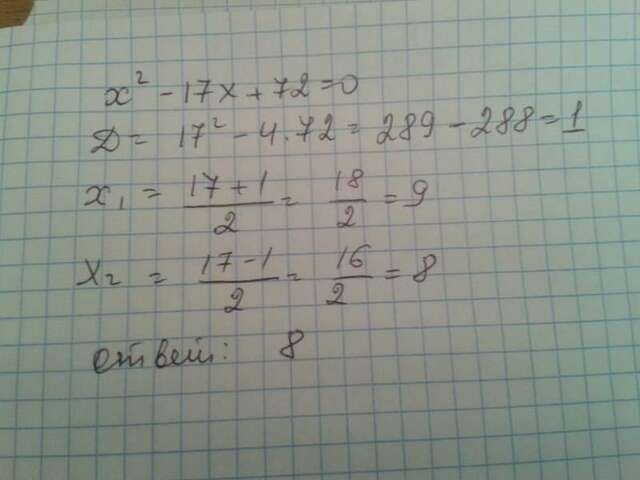 x² - 17x + 72 = 0
Д = 17² - 4 · 72 = 289 - 288 = 1
x₁ = (17 + 1)/2 = 18/2 = 9
x₂ = (17 - 1)/2 = 16/2 = 8
ответ: 8